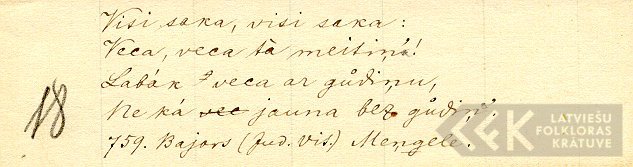 Visi saka, visi saka:
Veca, veca tà meitiņa!
Labák veca ar gůdiņu,
18
Ne ká vec jauna bez gůdiņ.
759. Bajors (Jud. Vis.) Mengele.
LATVIEŠU
FOLKLORAS
KRĀTUVE